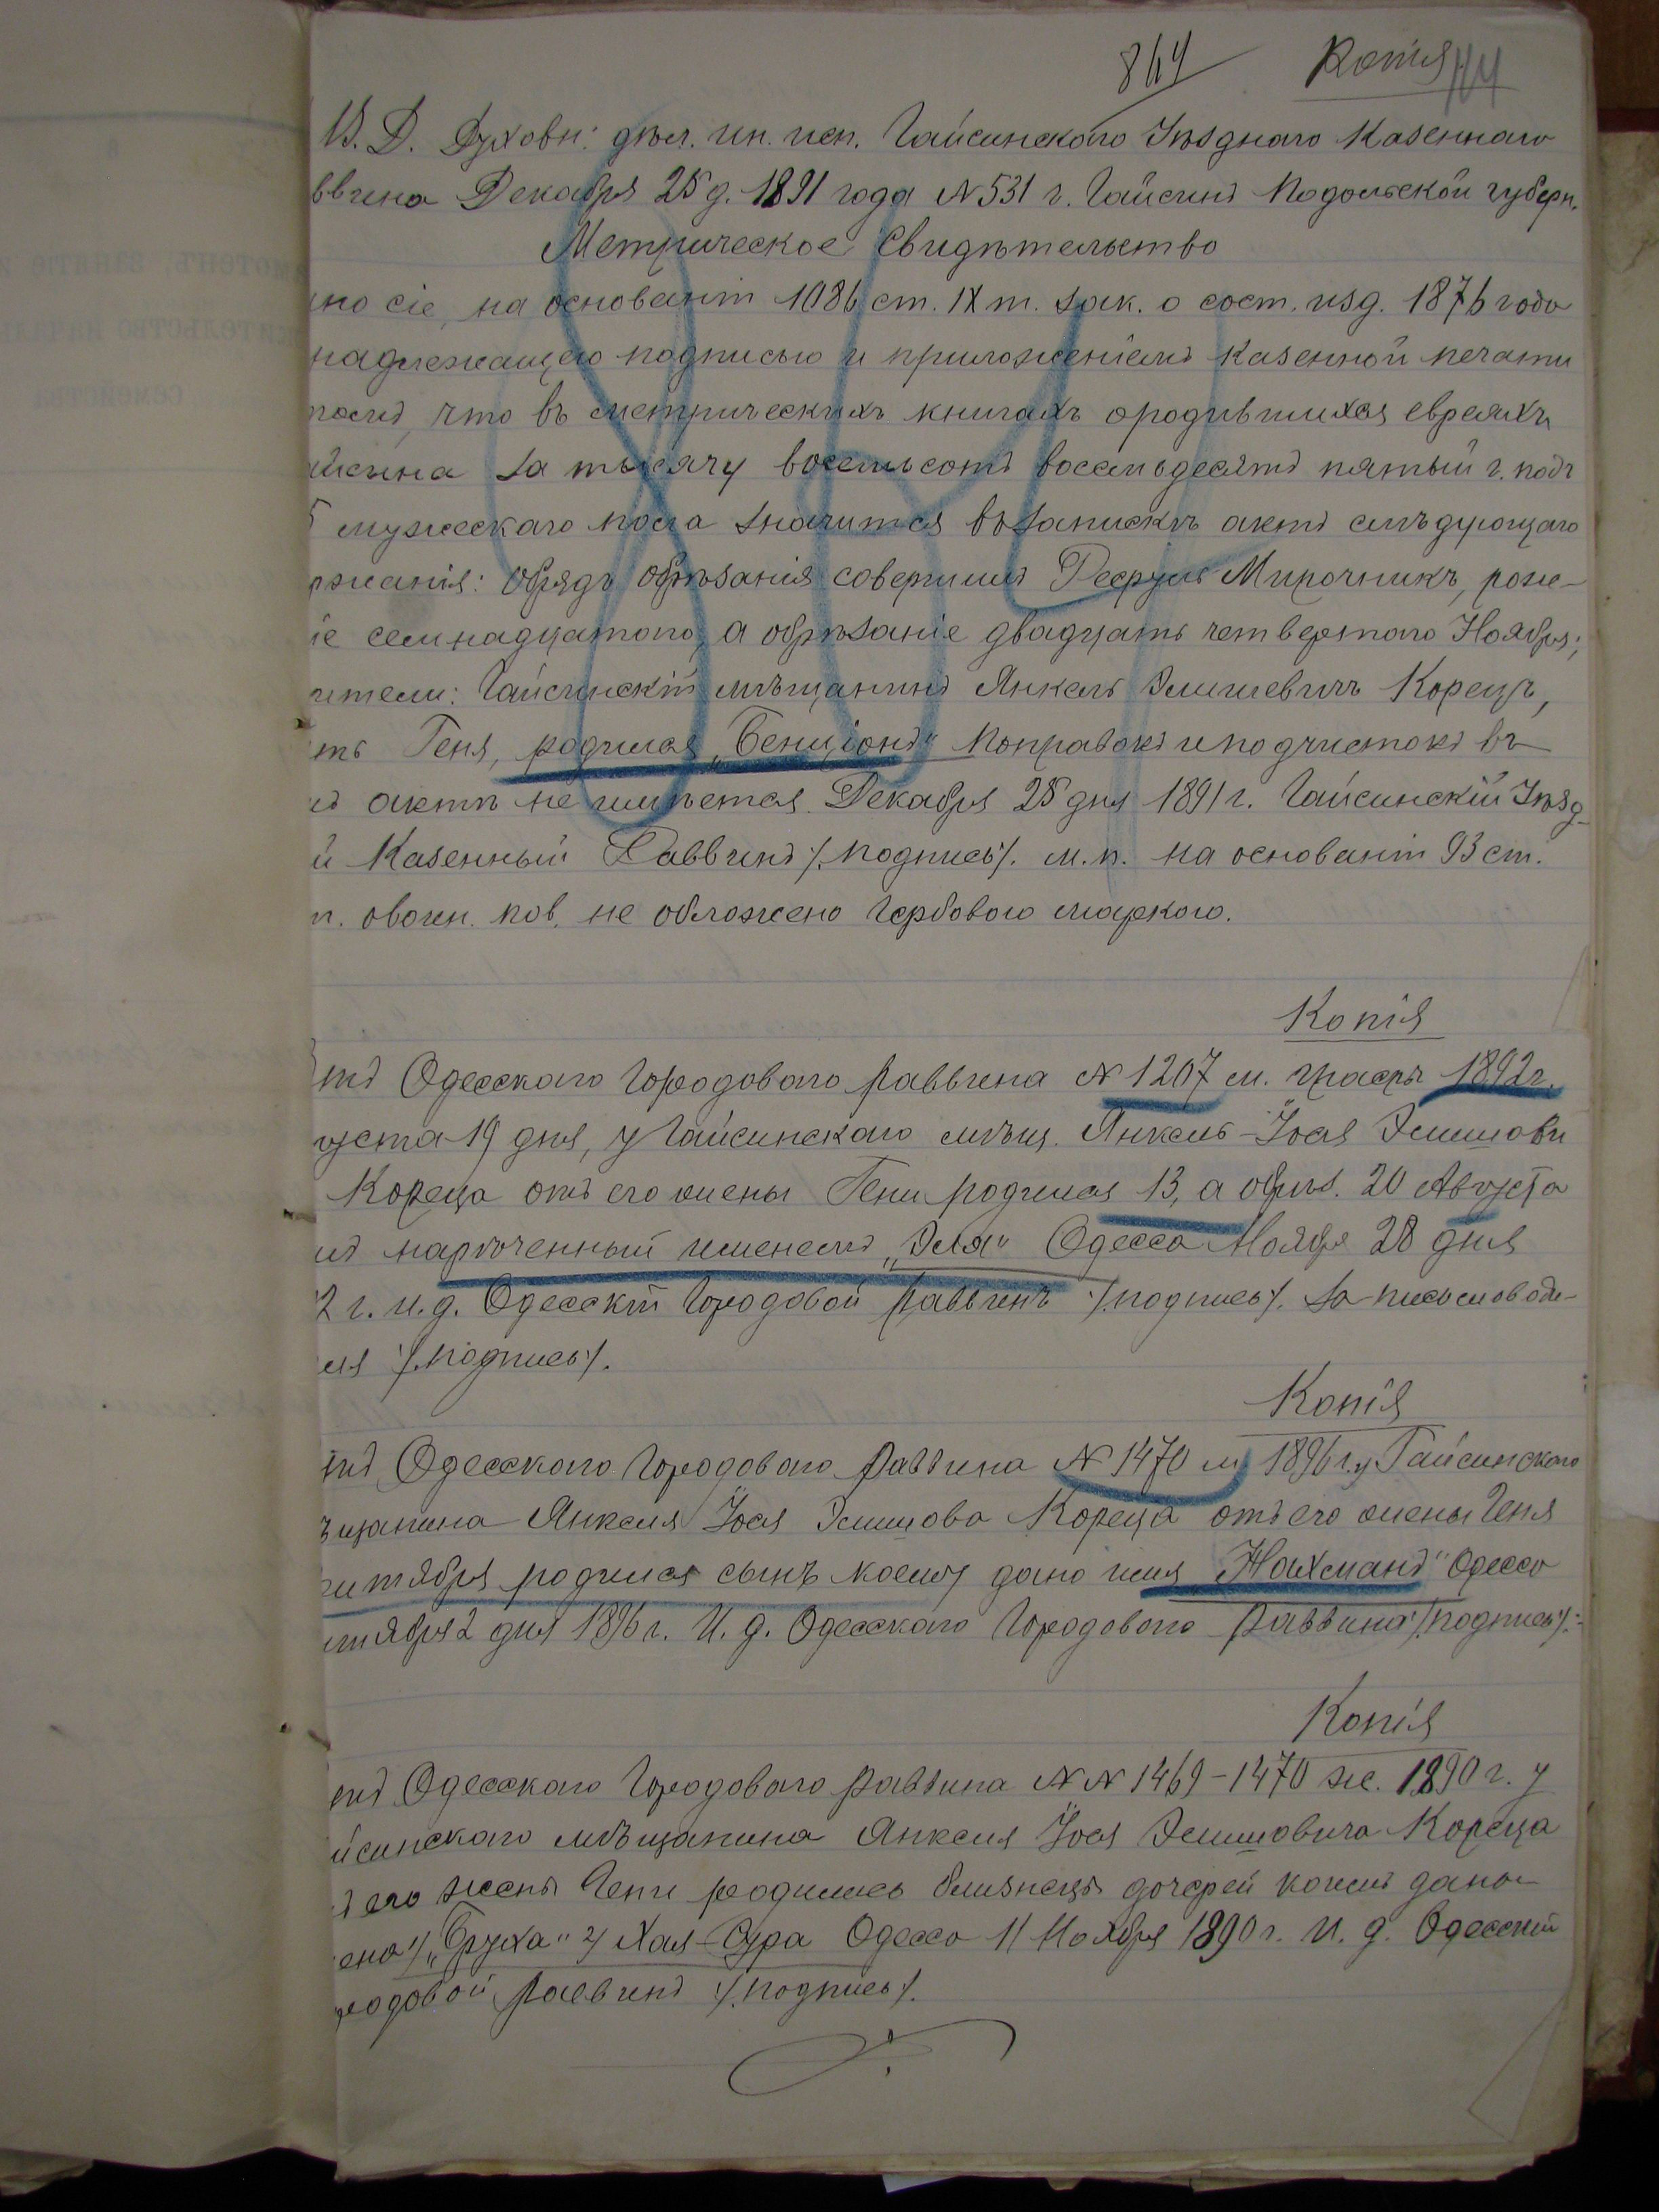 864 Копія 144
М.В.Д. Духовн. дѣл. ин. исп. Гайсинского Уѣзднаго Казеннаго
ввина Декабря 25 д. 1891 года № 531 г. Гайсинъ Подольской губерн.
Метрическое Свидѣтельство
но сіе, на основаніи 1086 ст. IX т. зак. о сост. изд. 1876 года
надлежащею подписью и приложеніемъ казенной печати
томъ, что въ метрическихъ книгахъ о родившихся евреяхъ
йсина за тысячу восемьсотъ восемьдесятъ пятый г. подъ
мужескаго пола значится въ запискѣ актъ слѣдующаго
ржанія: Обрядъ обрѣзанія совершилъ Мирочникъ, рожд-
іе семнадцатого, а обрѣзаніе двадцать четвертого Ноября;
ители: Гайсинскій мѣщанинъ Янкель Элишевичъ Корецъ,
ть Геня, родился „Бенціонъ" поправокъ и подчистокъ въ
ъ актѣ не имѣется. Декабря 25 дня 1891 г. Гайсинскій Уѣзд-
й Казенный Раввинъ /подпись/. м.п. на основаніи 93 ст.
п. о воин. пов. не обложено гербовою маркою.
Копія
тъ Одесского Городоваго раввина № 1207 м. графы 1892 г.
густа 19 дня, у Гайсинского мѣщ. Янкель-Іося Элишови
Кореца отъ его жены Гени родился 13, а обрѣз. 20 Августа
ъ нареченный именемъ „Эля" Одесса Ноября 28 дня
2 г. и.д. Одесскій Городовой раввинъ /подпись/. за письмоводи-
ля /подпись/.
Копія
тъ Одесского Городоваго раввина № 1470 м 1896 г. у Гайсинского
ѣщанина Янкеля Іося Элишова Кореца отъ его жены Геня
нтября родился сынъ коему дано имя „Нахманъ" Одесса
тября 2 дня 1896 г. И.д. Одесского Городового раввина /подпись/.
Копія
тъ Одесского Городоваго раввина №№ 1469-1470 ж. 1890 г. у
йсинского мѣщанина Янкеля Іося Элишовича Кореца
ъ его жены Гени родились близнецы дочерей коимъ даны
ена 1/ „Бруха" 2/ Хая-Сура Одесса 11 Ноября 1890 г. И.д. Одесскій
родовой раввинъ /подпись/.